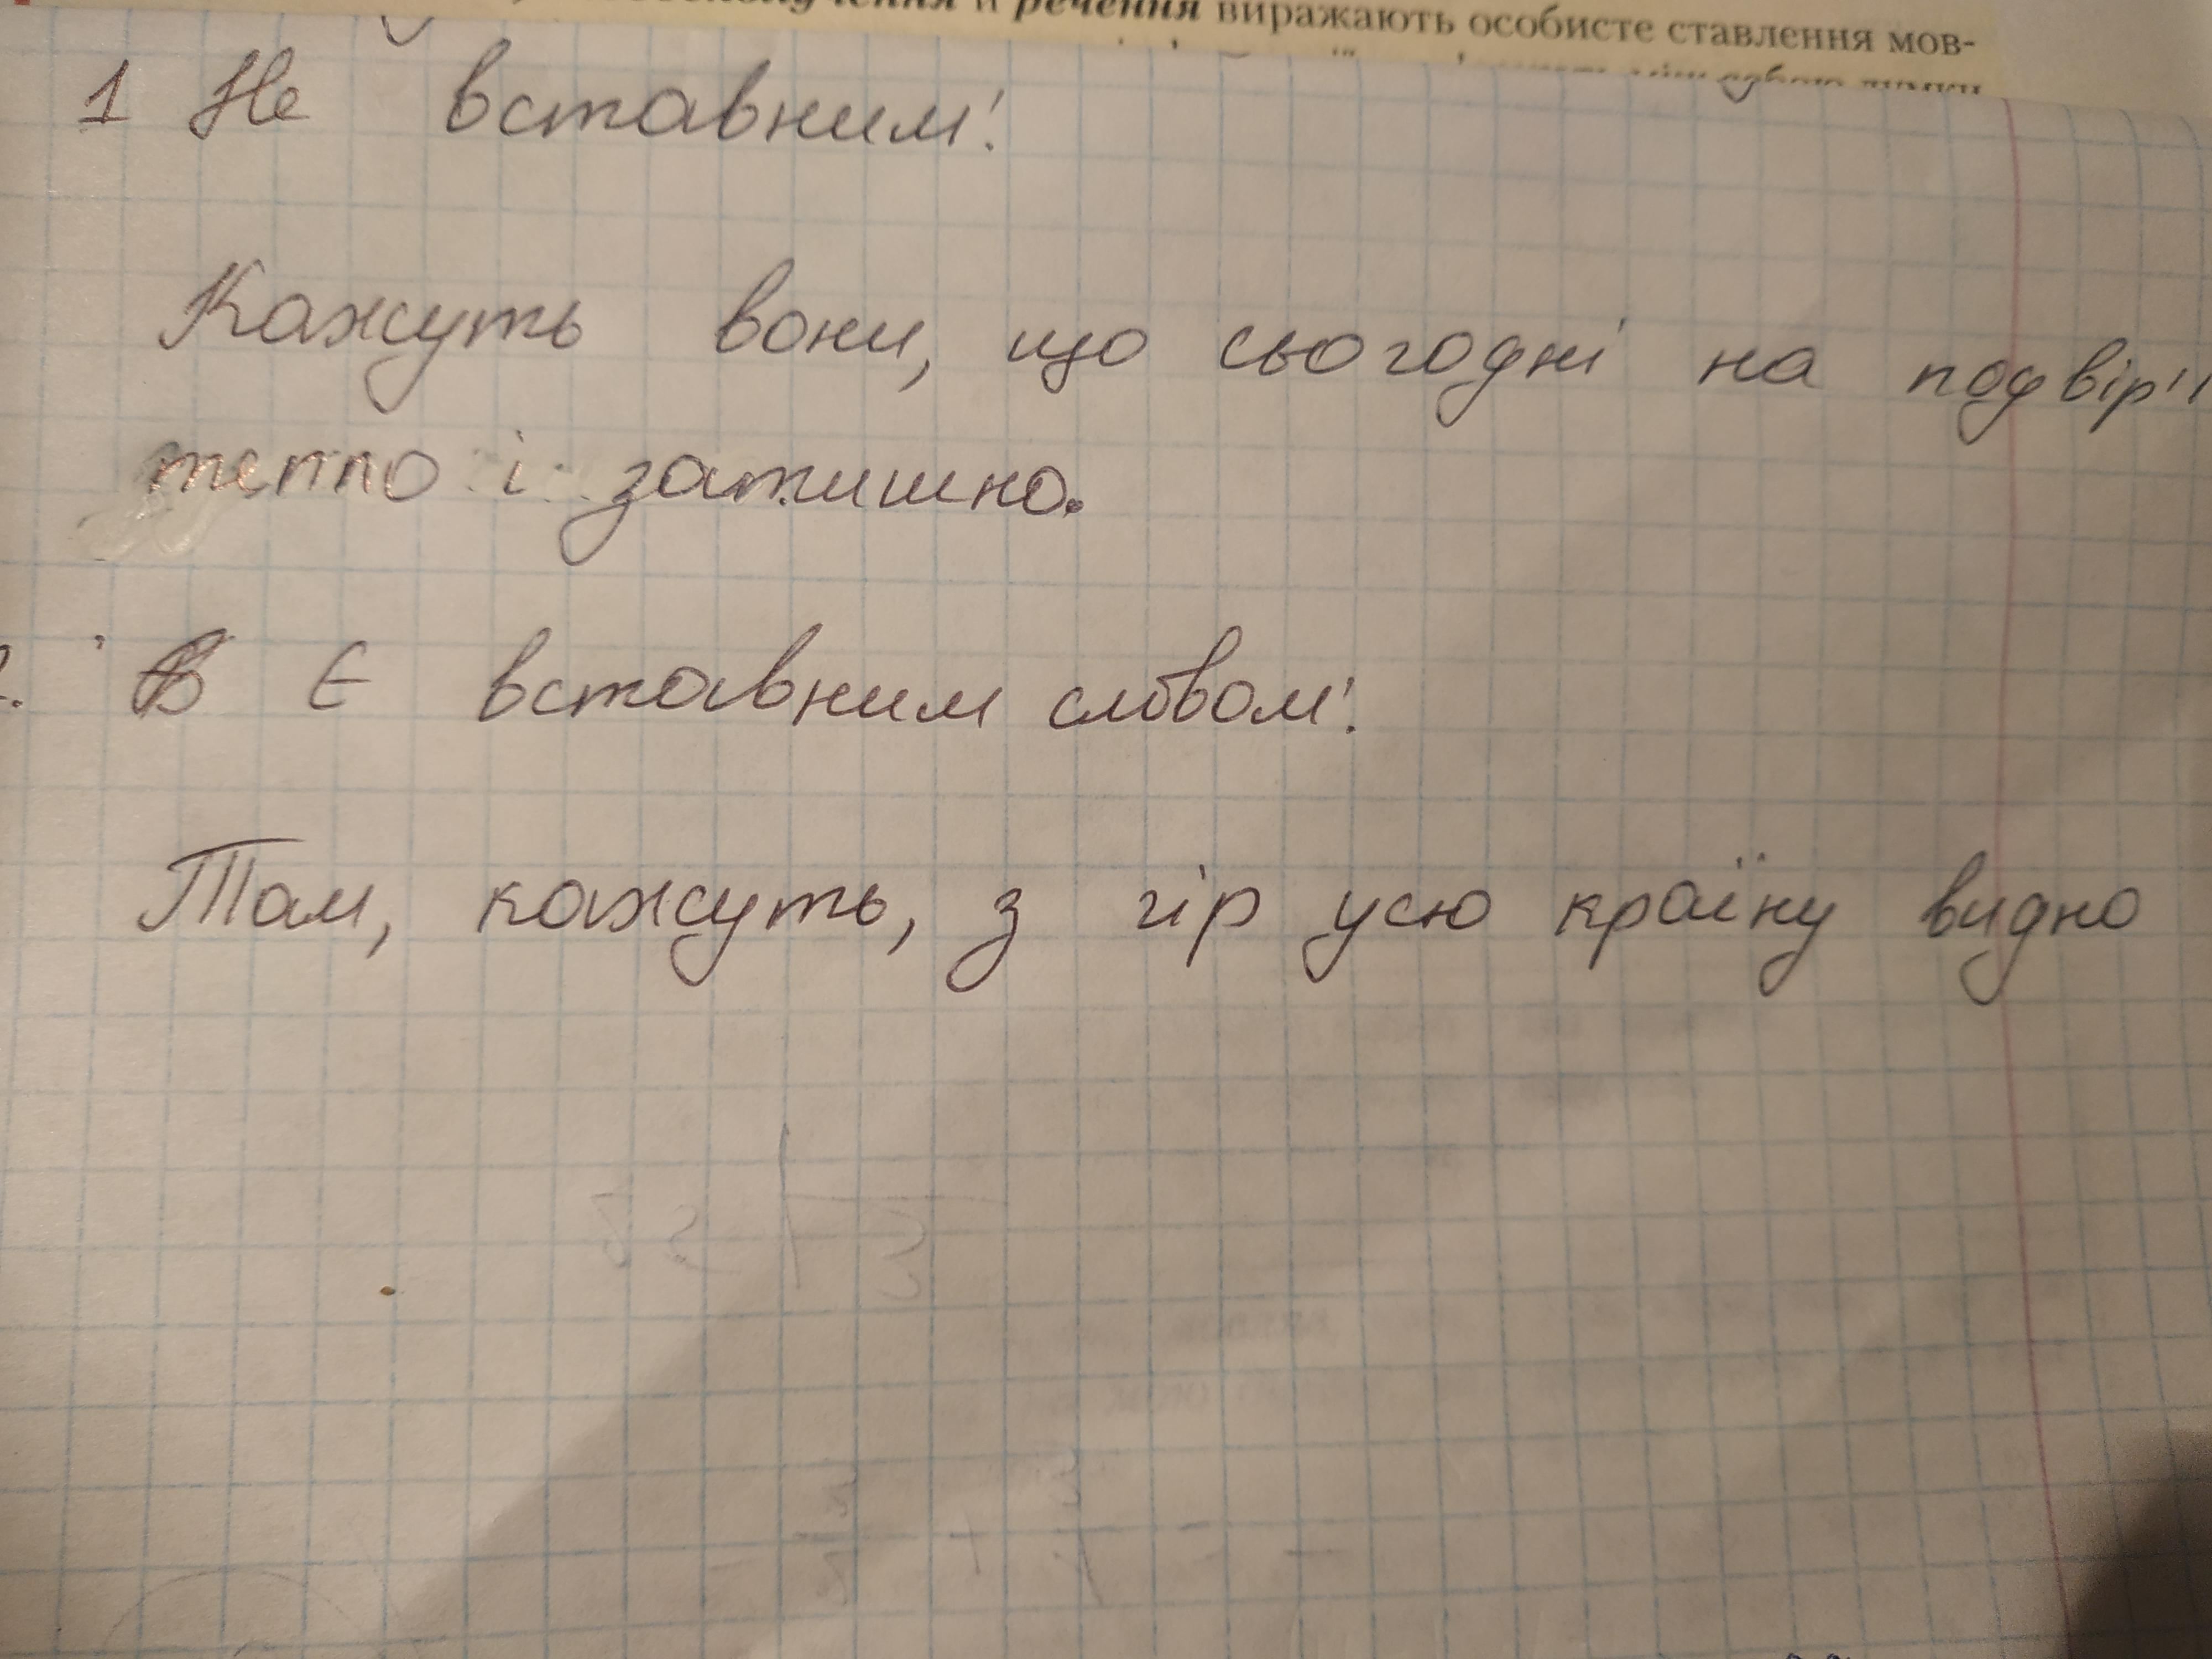 й речення виражають особисте ставлення мов-
1 Не вставним!
Кажуть вони, що сьогодні на подвір'ї
тепло і затишно.
Є вставним словом!
Там, кажуть, з гір усю країну видно